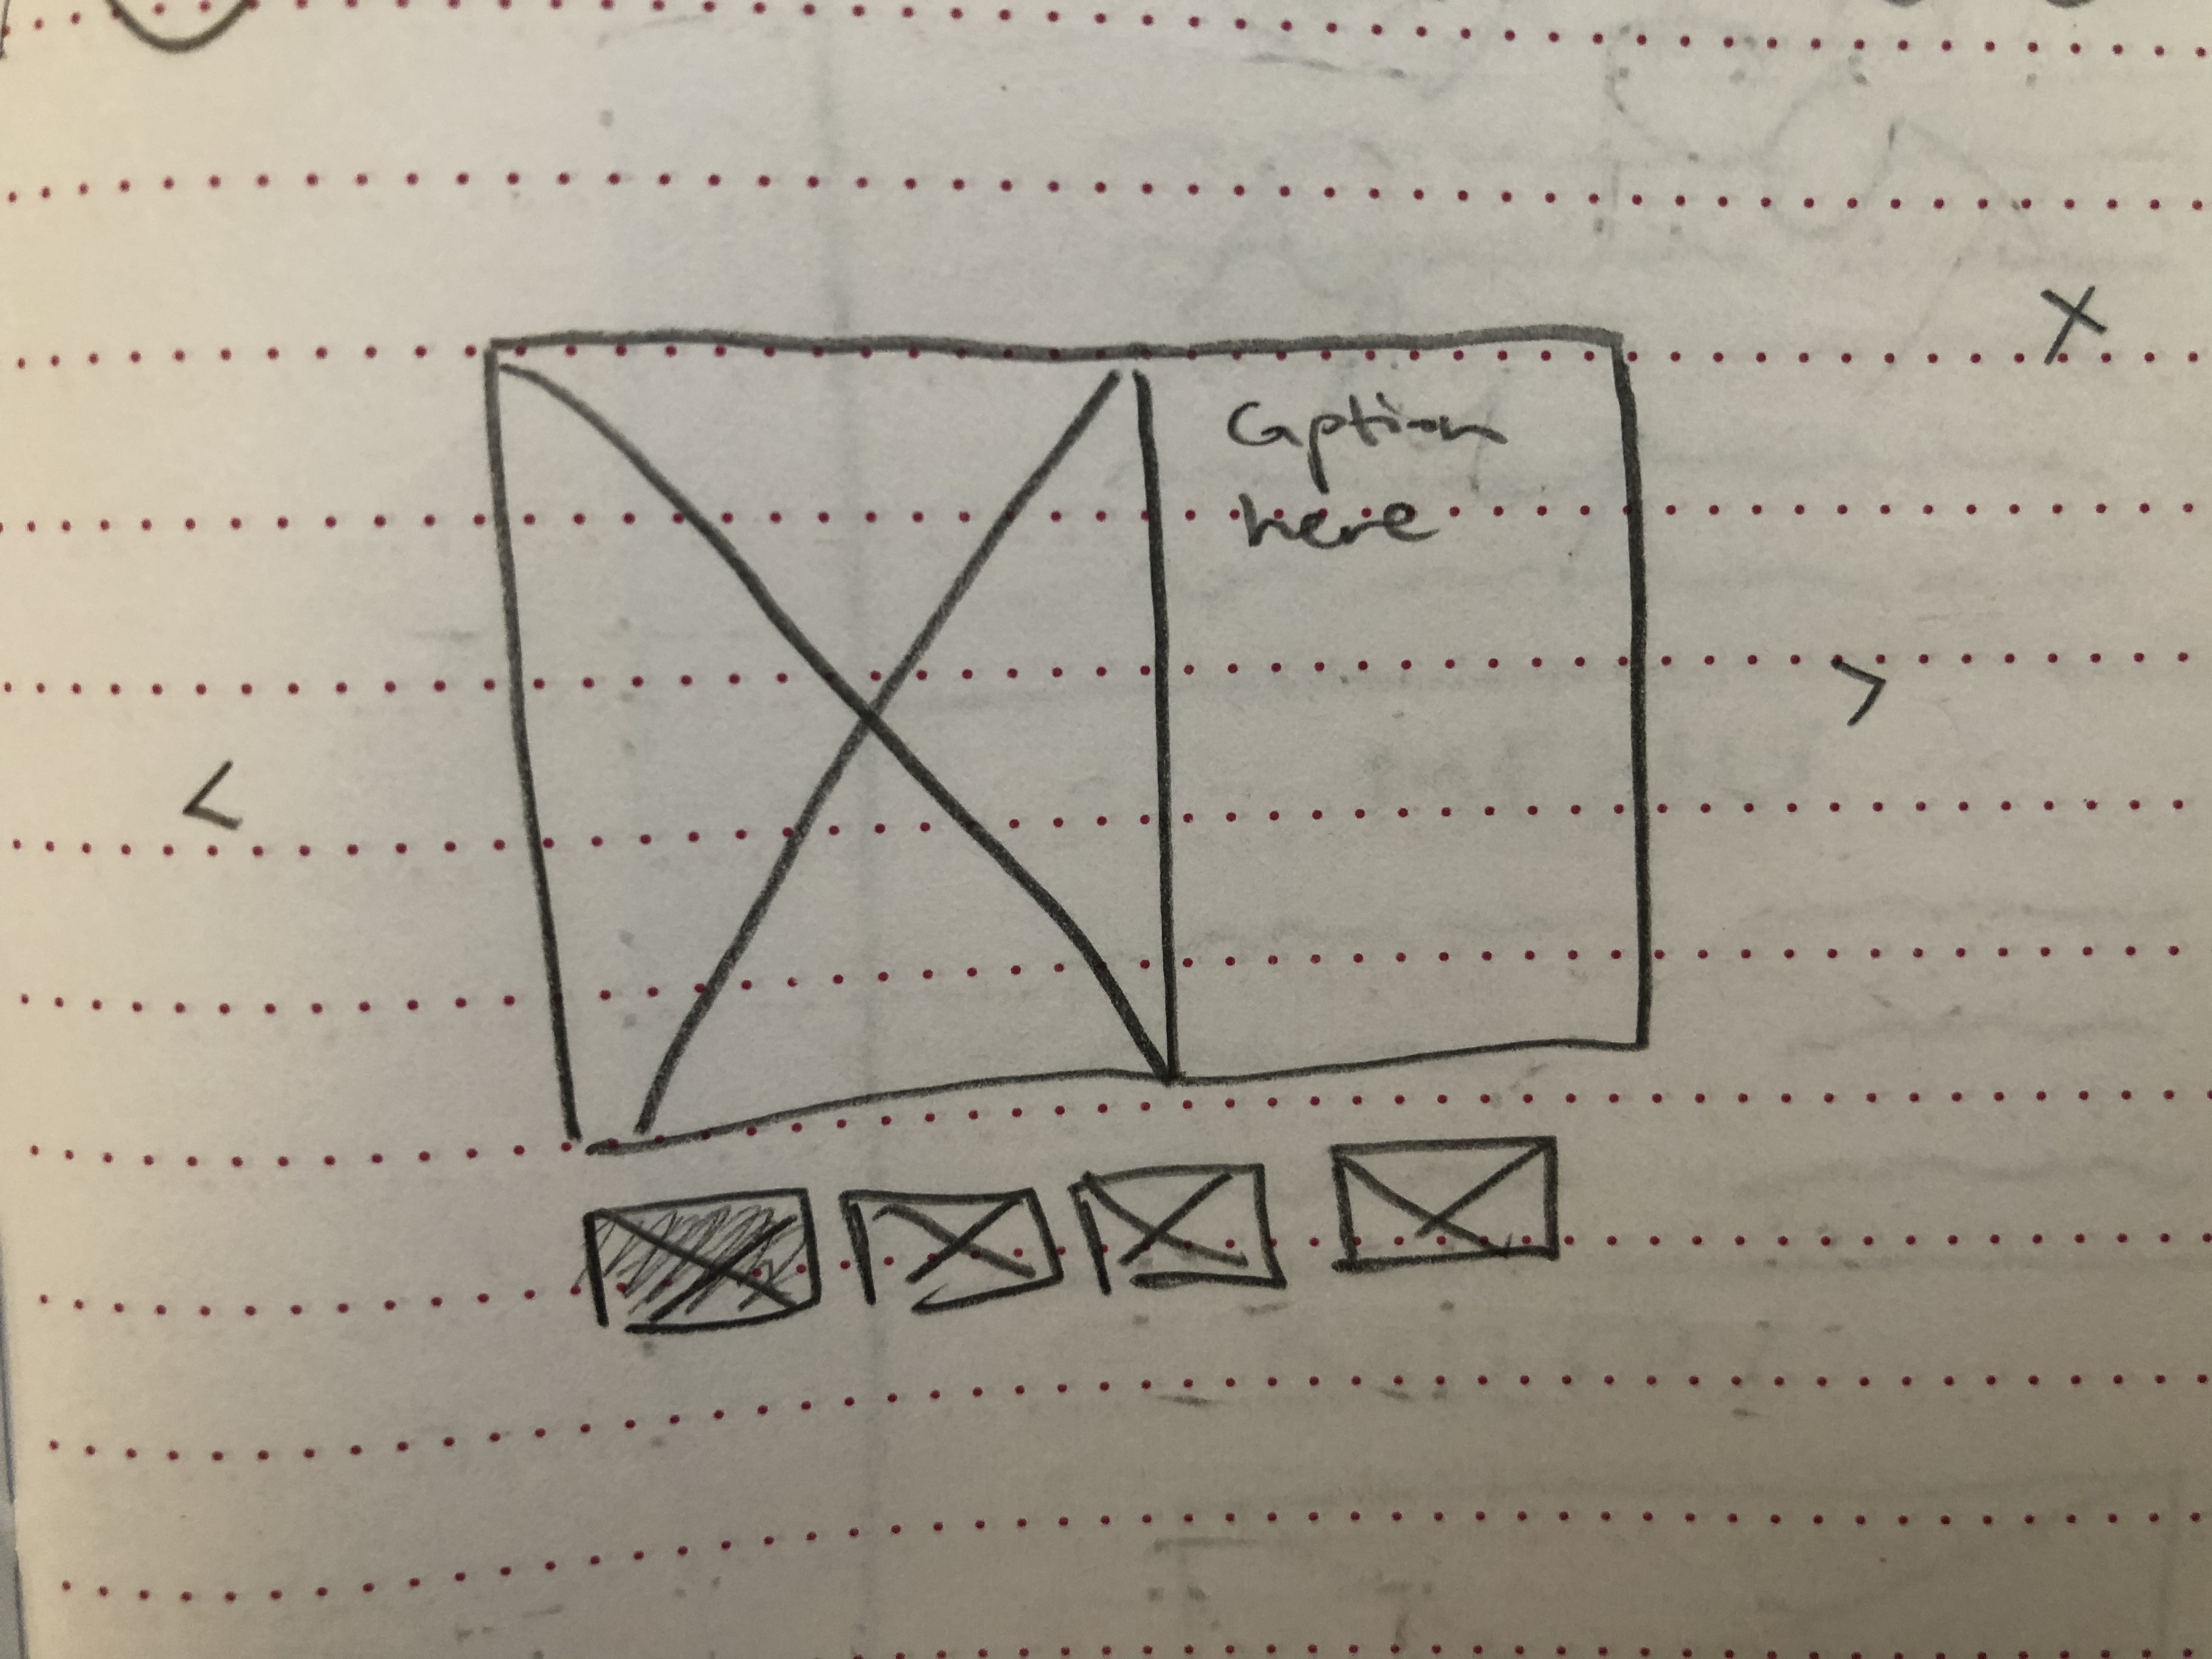 X
Caption
here
>
<